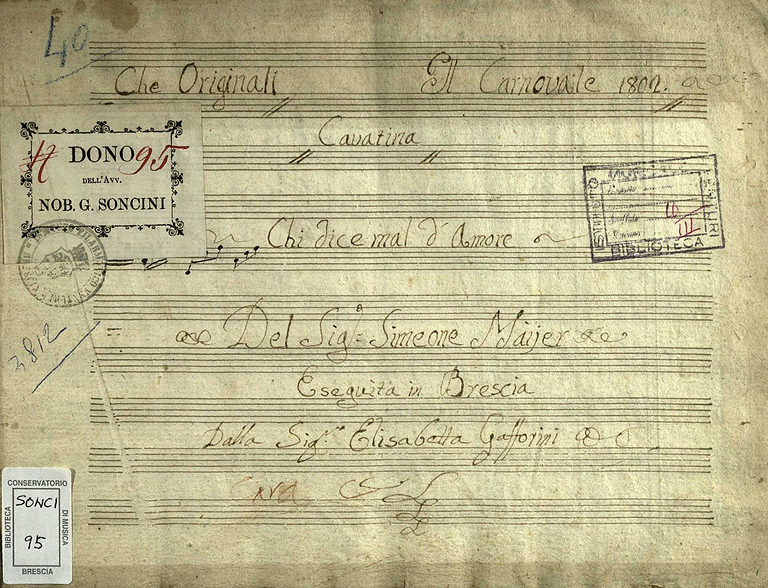 40
Che Originali Il Carnovaile 1802.
Cavatina
# DONO 95
DELL'AVV.
NOB. G. SONCINI
BIBLIOTECA
Chi dice mal d'Amore
3812
Del Sig.r Simeone Maijer
Eseguita in Brescia
Dalla Sig.ra Elisabetta Gafforini
CONSERVATORIO
BIBLIOTECA
DI MUSICA
SONCI
95
BRESCIA